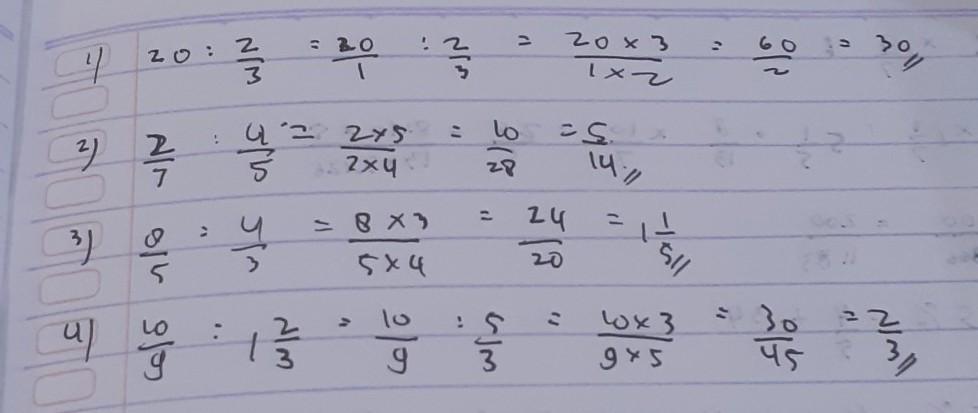 1) 20 : 2/3 = 20/1 : 2/3 = 20 × 3/1 × 2 = 60/2 = 30
2) 2/7 : 4/5 = 2×5/2×4 = 10/28 = 5/14
3) 8/5 : 4/3 = 8 × 3/5 × 4 = 24/20 = 1 1/5
4) 10/9 : 1 2/3 = 10/9 : 5/3 = 10×3/9×5 = 30/45 = 2/3